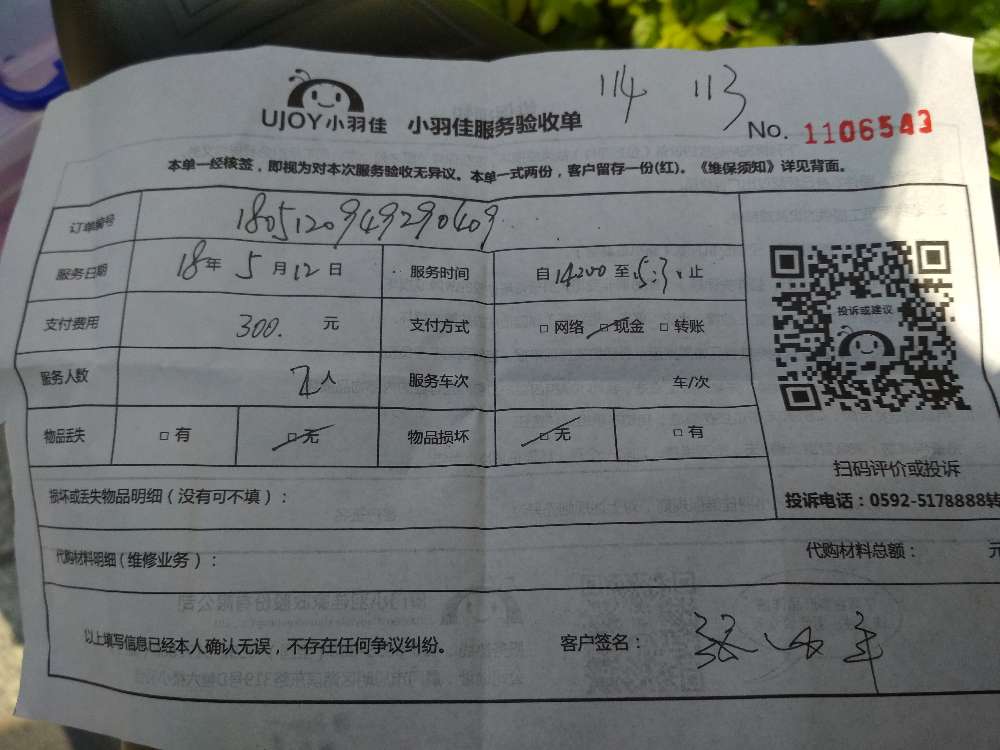 114 113
UJOY小羽佳 小羽佳服务验收单 No. 1106543
本单一经核签，即视为对本次服务验收无异议。本单一式两份，客户留存一份(红)。《维保须知》详见背面。
订单编号 1805120949290409
服务日期 18年 5月12日 服务时间 自14:00至 止
支付费用 300. 元 支付方式 □ 网络 □ 现金 □ 转账
服务人数 2人 服务车次 车/次
投诉或建议
物品丢失 □ 有 □ 无 物品损坏 □ 无 □ 有
扫码评价或投诉
损坏或丢失物品明细（没有可不填）：
投诉电话：0592-5178888转
代购材料明细(维修业务)： 代购材料总额： 元
以上填写信息已经本人确认无误，不存在任何争议纠纷。 客户签名：